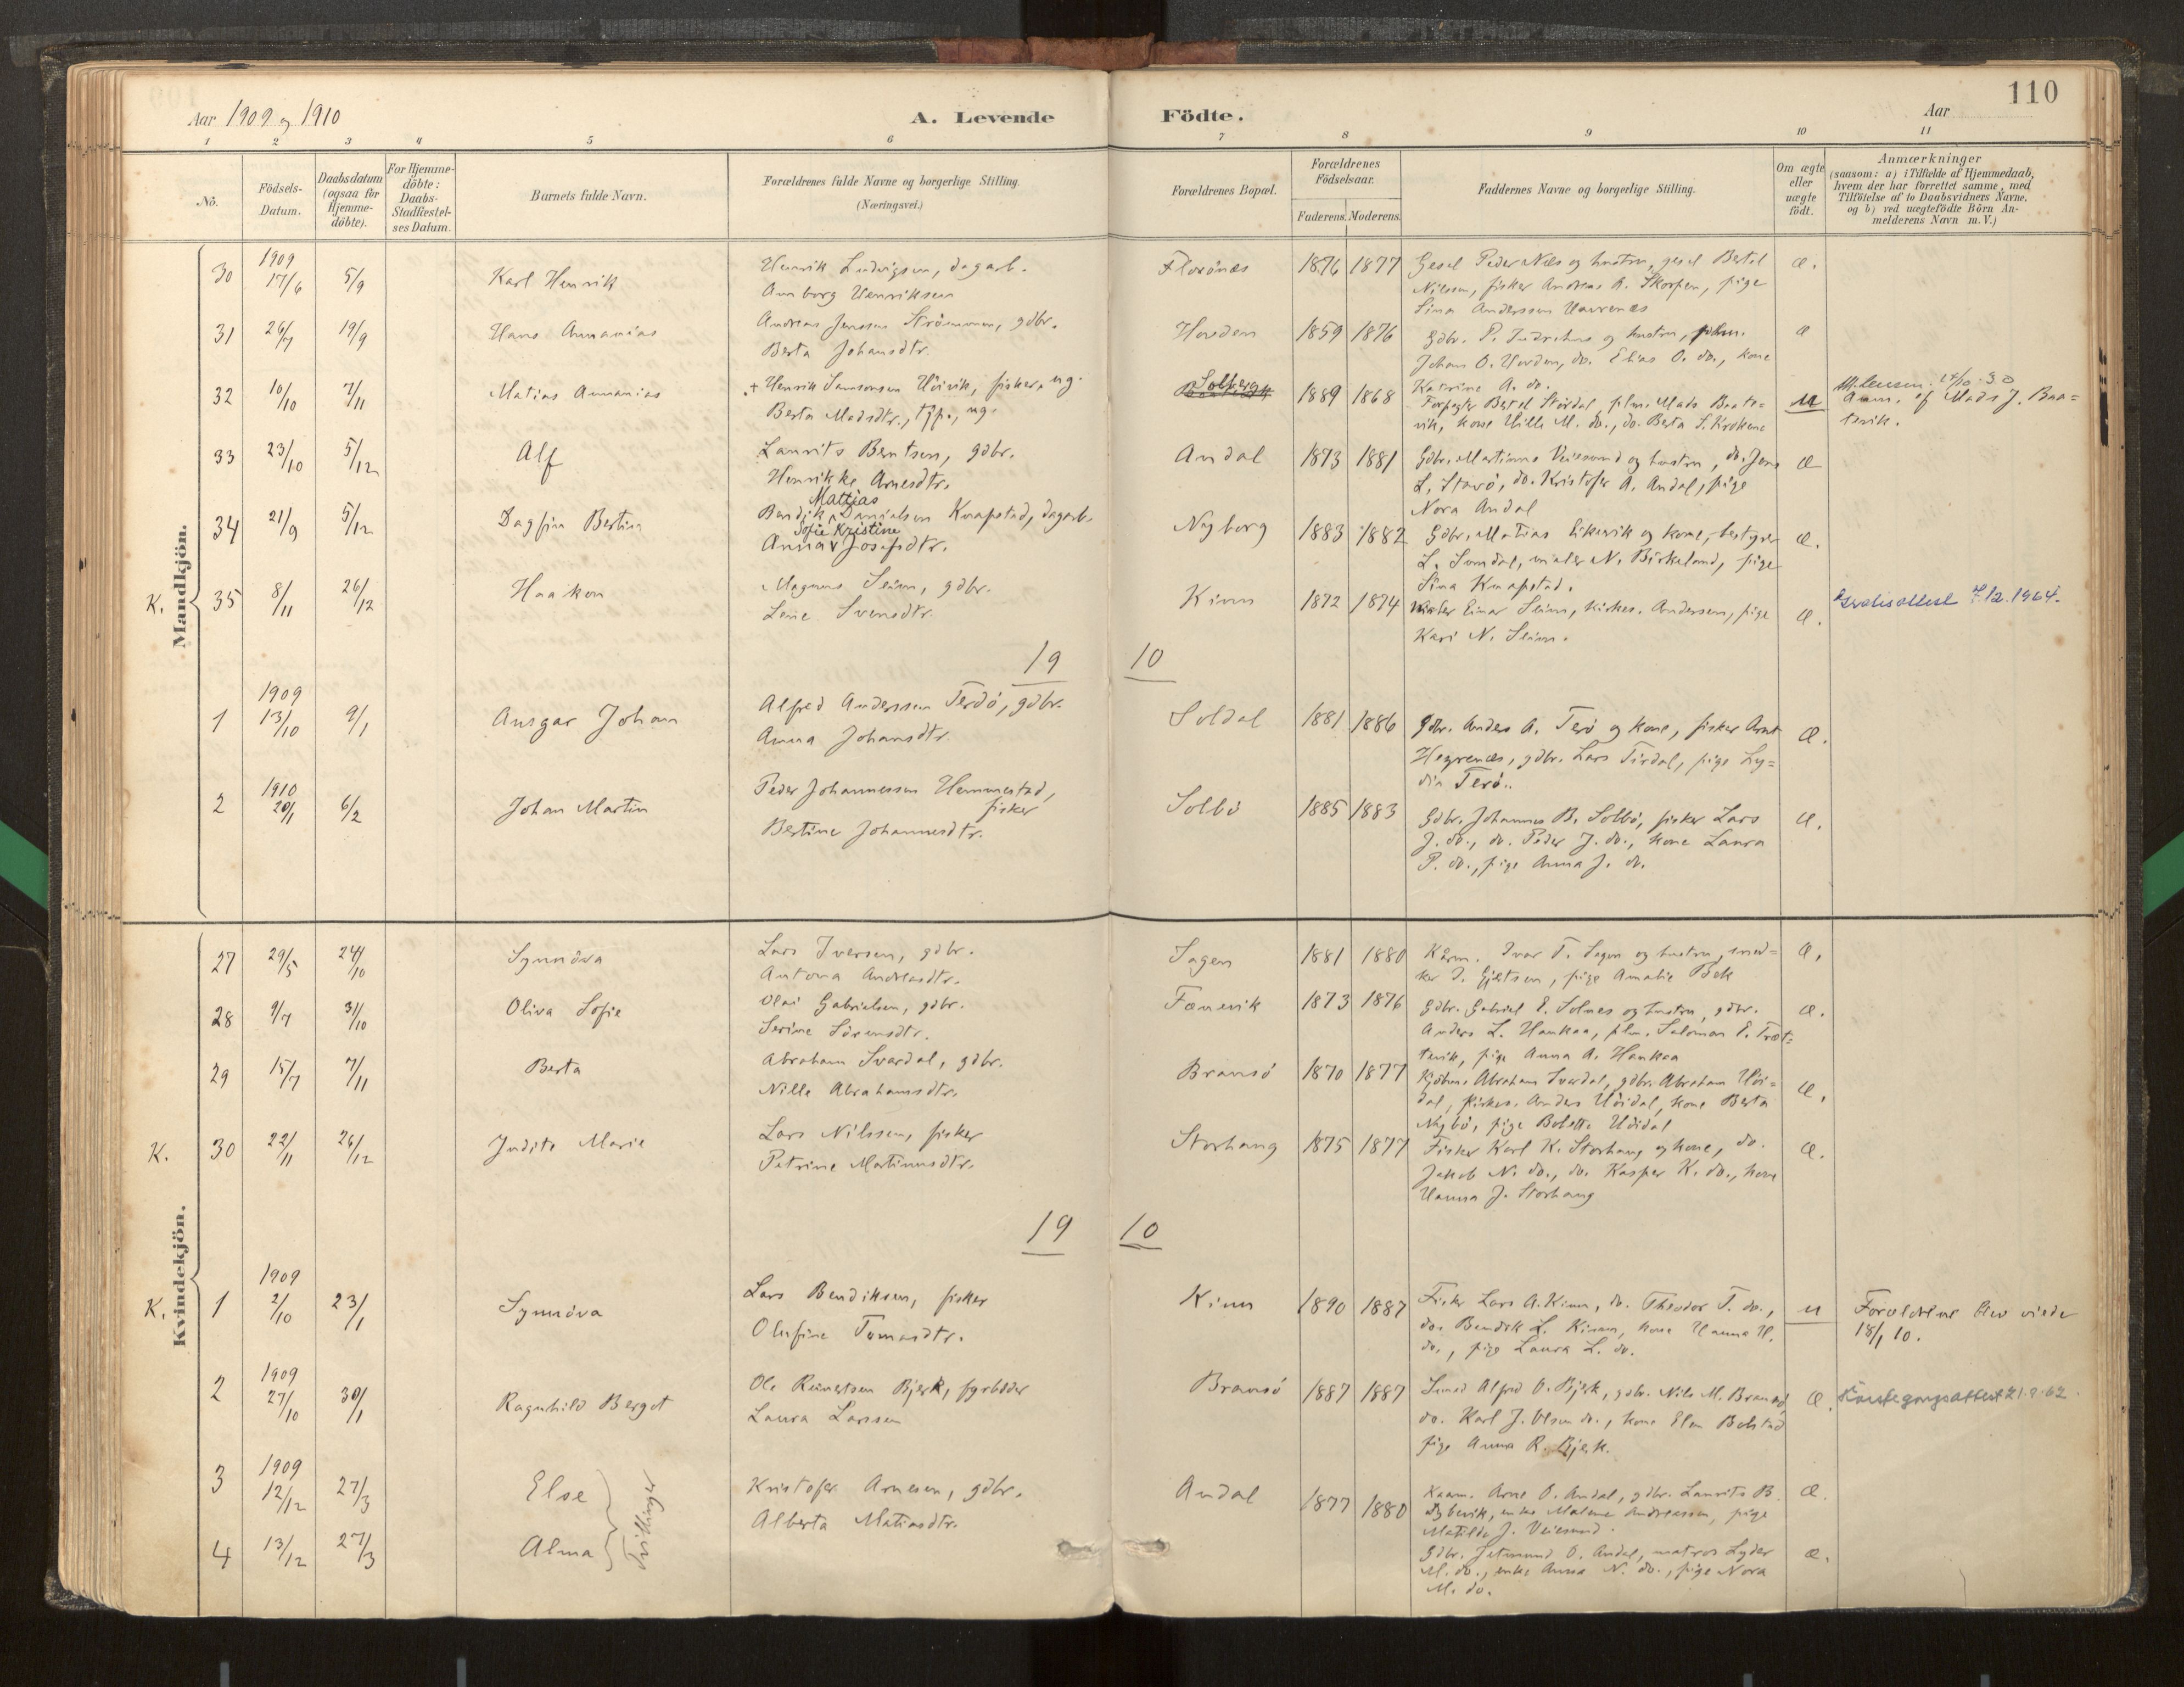 110
Aar 1909 og 1910
A. Levende Födte.
Aar
1 2 3 4 5 6 7 8 9 10 11
No.
Födsels-Datum.
Daabsdatum (ogsaa for Hjemme-döbte).
For Hjemme-döbte: Daabs-Stadfæstel-ses Datum.
Barnets fulde Navn.
Forældrenes fulde Navne og borgerlige Stilling.
(Næringsvei.)
Forældrenes Bopæl.
Forældrenes Födselsaar.
Faderens. Moderens.
Faddernes Navne og borgerlige Stilling.
Om ægte eller uægte födt.
Anmærkninger
(saasom: a) i Tilfælde af Hjemmedaab,
hvem der har forrettet samme, med
Tilföielse af to Daabsvidners Navne,
og b) ved uægtefödte Börn An-
melderens Navn m. V.)
Mandkjön.
30 1909 17/6 5/9 Karl Henrik
Henrik Ludvigsen, dagarb.
Amborg Henriksen
Florönæs 1876 1877
Gesel Peder Næs og hustru, gesel Bertel
Nilssen, fisker Andreas A. Skorpen, pige
Lina Anderssen Havrenes
æ.
31 26/7 19/9 Hans Annanias
Andreas Jenssen Strömmen, gdbr.
Berta Johansdtr.
Hovden 1859 1876
Gdbr. P. Indrehus og hustru,
Johan O. Hovden, do. Elias O. do., kone
Katrine A. do.
æ
32 10/10 7/11 Matias Annanias
+ Henrik Samsonsen Hövik, fisker, ug.
Berta Madsdtr., tjp., ug.
Solberg 1889 1868
Forpagter Bertel Stördal, plm. Mads Baate-
vik, kone Nille M. do., do. Berta S. Krokene
u
Anm. af Mads J. Baa=
tevik.
33 23/10 5/12 Alf
Laurits Berntsen, gdbr.
Henrikke Arnesdtr.
Andal 1873 1881
Gdbr. Martinus Veiesund og hustru, do. Jens
L. Stavö, do. Kristofer A. Andal, pige
Nora Andal
æ
34 21/9 5/12 Dagfin Bertin
Mattias
Bendik Danielsen Knapstad, dagarb.
Sofie Kristine
Anna Josefsdtr.
Nyborg 1883 1882
Gdbr. Matias Eikevik og kone, bestyrer
L. Sundal, maler N. Birkeland, pige
Lina Knapstad.
æ.
K. 35 8/11 26/12 Haakon
Magnus Seim, gdbr.
Lene Svensdtr.
Kinn 1872 1874
Maler Einar Seim, kirkes. Andersen, pige
Kari N. Seim.
æ.
Gratisattest 7/12.1964.
19 10
1 1909 13/10 9/1 Ansgar Johan
Alfred Anderssen Terdö, gdbr.
Anna Johansdtr.
Soldal 1881 1886
Gdbr. Anders A. Terö og kone, fisker Arnt
Hegrenæs, gdbr. Lars Tirdal, pige Ly=
dia Terö.
æ.
2 1910 20/1 6/2 Johan Martin
Peder Johannessen Hemmestad,
fisker
Bertine Johannesdtr.
Solbö 1885 1883
Gdbr. Johannes B. Solbö, fisker Lars
J. do., do. Peder J. do., kone Laura
P. do., pige Anna J. do.
æ.
Kvindekjön.
27 29/5 24/10 Synnöva
Lars Iversen, gdbr.
Antona Andreasdtr.
Sagen 1881 1880
Kårm. Ivar T. Sagen og hustru, sned=
ker I. Gjertsen, pige Amalie Bek
æ.
28 9/7 31/10 Oliva Sofie
Olai Gabrielsen, gdbr.
Serine Sörensdtr.
Fanevik 1873 1876
Gdbr. Gabriel E. Solnes og hustru, gdbr.
Anders L. Haukaa, plm. Salomon E. Træt=
tevik, pige Anna A. Haukaa
æ.
29 15/7 7/11 Berta
Abraham Svardal, gdbr.
Nille Abrahamsdtr.
Bransö 1870 1877
Kjöbm. Abraham Svardal, gdbr. Abraham Höi=
dal, kirkes. Anders Höidal, kone Berta
Nybö, pige Bolette Höidal
æ.
K. 30 22/11 26/12 Judite Marie
Lars Nilssen, fisker
Petrine Martinusdtr.
Storhaug 1875 1877
Fisker Karl K. Storhaug og kone, do.
Jakob N. do., do. Kasper K. do., kone
Hanna J. Storhaug
æ.
19 10
K. 1 1909 2/10 23/1 Synnöva
Lars Bendiksen, fisker
Olufine Tomasdtr.
Kinn 1890 1887
Fisker Lars A. Kinn, do. Theodor T. do.,
do. Bendik L. Kinn, kone Hanna H.
do., pige Laura L. do.
u
Forældrene blev viede
18/1 10.
2 1909 27/10 30/1 Ragnhild Berget
Ole Reinertsen Bjerk, fyrböder
Laura Larssen
Bransö 1887 1887
Smed Alfred O. Bjerk, gdbr. Nils M. Bransö,
do. Karl J. Olsen do., kone Elen Bolstad
pige Anna R. Bjerk.
æ.
3 1909 12/12 27/3 Else
4 13/12 27/3 Alma
Tvillinger
Kristofer Arnesen, gdbr.
Alberta Matiasdtr.
Andal 1877 1880
Kaarm. Arne O. Andal, gdbr. Laurits B.
Nybevik, enke Malene Andreassen, pige
Matilde J. Veiesund.
æ.
Gdbr. Jetmund O. Andal, matros Lyder
M. do., enke Anna N. do., pige Nora
M. do.
æ.